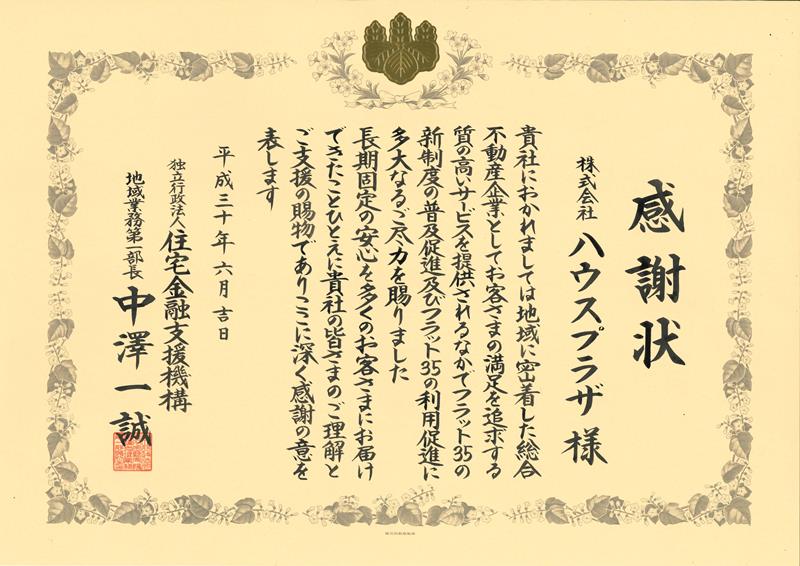 感謝状
株式会社 ハウスプラザ 様
貴社におかれましては地域に密着した総合
不動産企業としてお客さまの満足を追求する
質の高いサービスを提供されるなかでフラット35の
新制度の普及促進及びフラット35の利用促進に
多大なるご尽力を賜りました
長期固定の安心を多くのお客さまにお届け
できたことひとえに貴社の皆さまのご理解と
ご支援の賜物でありここに深く感謝の意を
表します
平成三十年六月吉日
独立行政法人 住宅金融支援機構
地域業務第一部長 中澤一誠